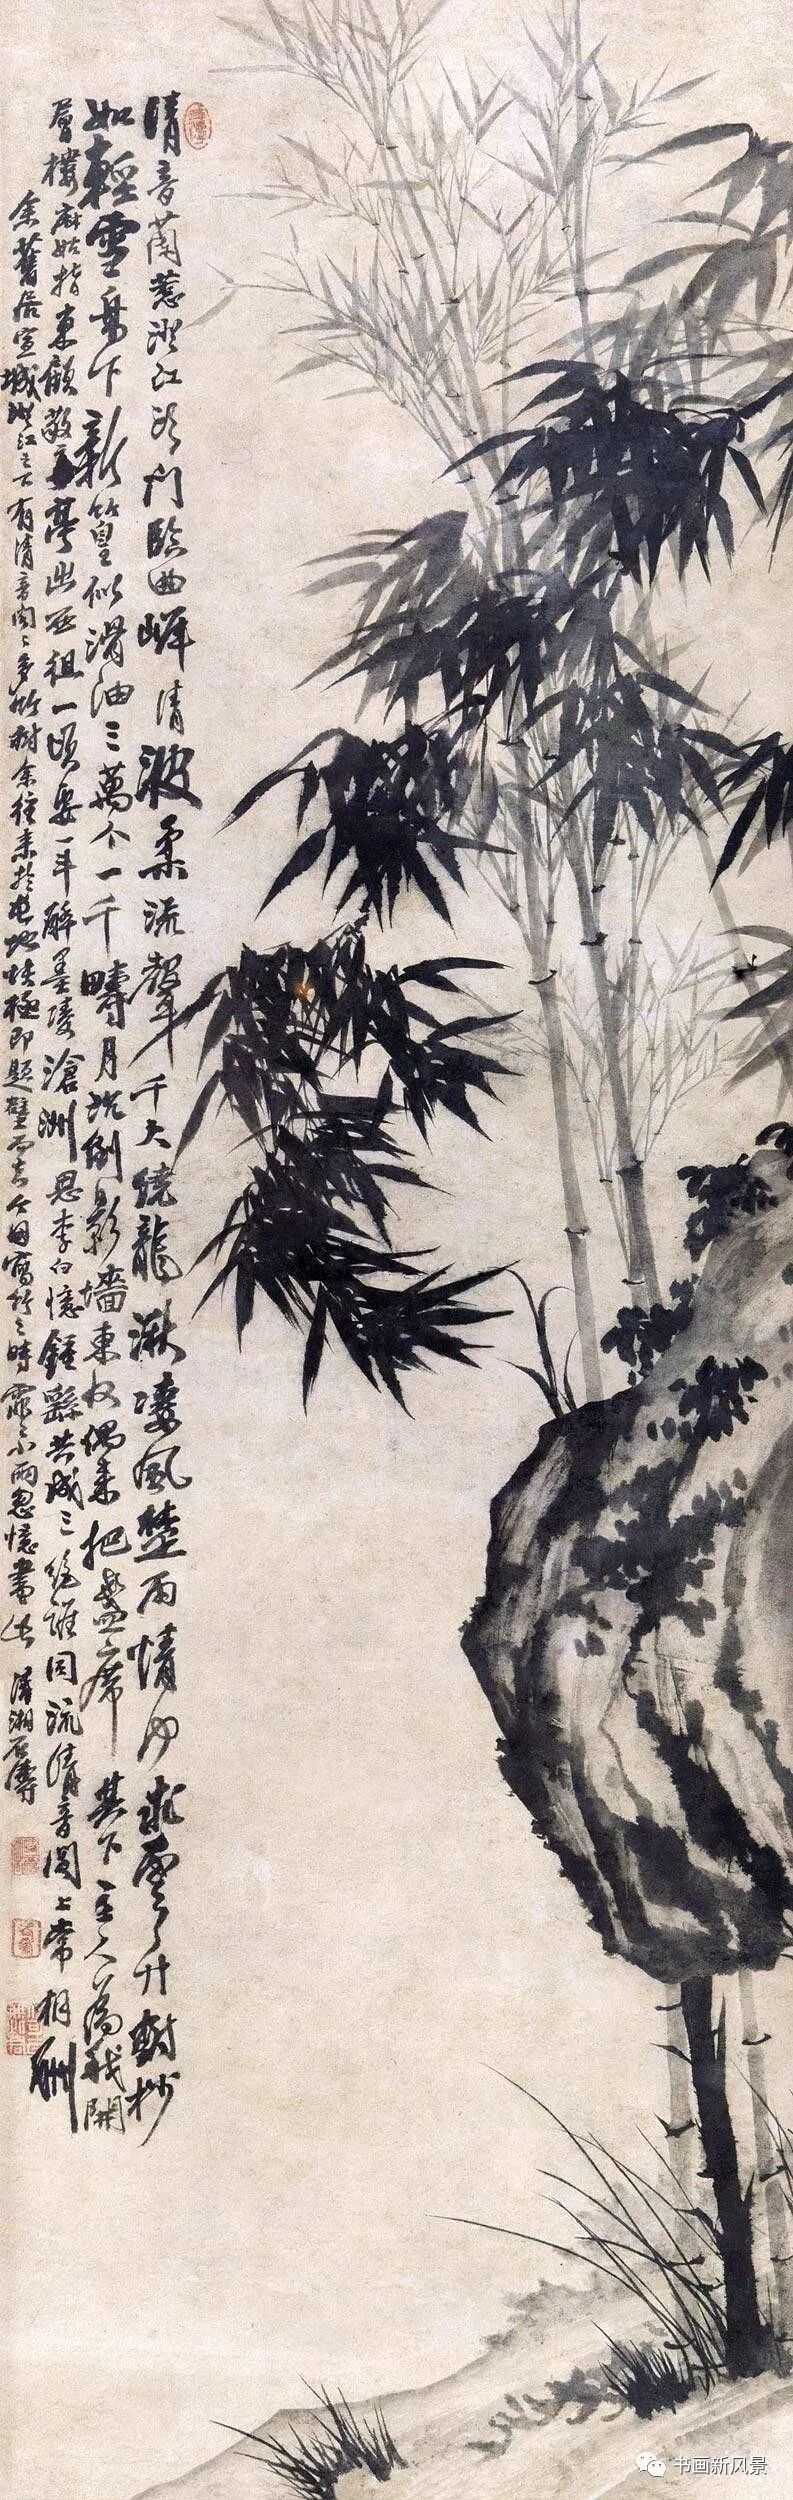 清音蘭惹澄江頭門臨曲岸清波柔流聲千丈繞龍湫凄風楚雨情何求雲升樹杪
如輕雲舟下新篁似滑油三萬个一千疇月沉倒影墻東收偶來把盞席其下主人為我開
層樓麻姑指東顧敬亭出至祖一頃安一斗解墨凌滄洲思李白憶鍾繇共成三絕誰同流清音閣上常相酬
余舊居宣城澄江之下有清音閣閣多竹樹余往來於其地快極即題壁而去今日寫竹之時霏霏小雨忽憶書此 清湘石濤
书画新风景